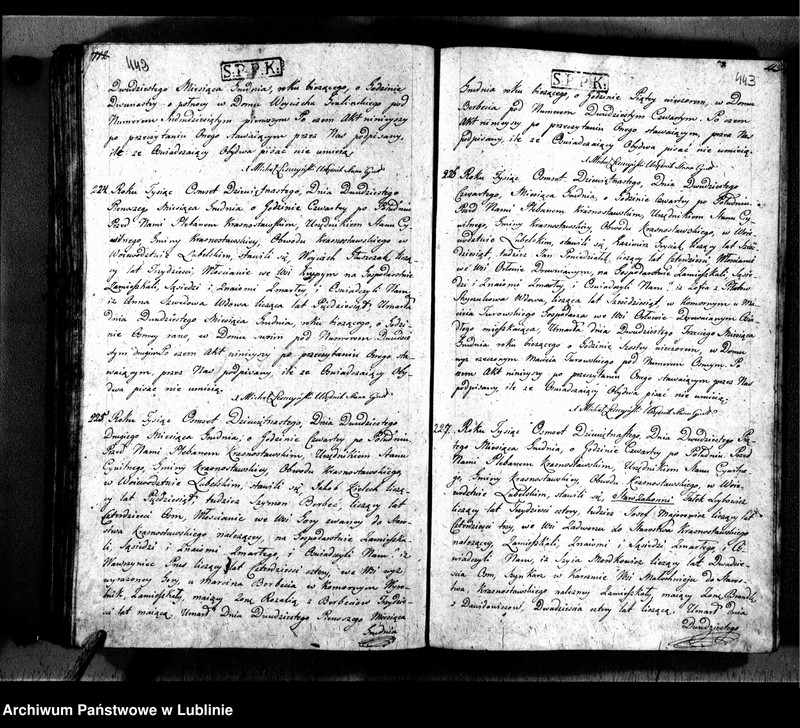 442
449
S.P.P.K.
Dwudziestego Miesiąca Grudnia, roku bieżącego, o Godzinie
Dwunasty o północy w Domu Woyciecha pod
Numerem pierwszym Po czem Akt ninieyszy
po przeczytaniu Onego Stawaiącym przez Nas podpisany,
ile że Oświadczaiący Obydwa pisać nie umieią.
X Michał Urzędnik Stanu Cywil
224. Roku Tysiąc Osmset Dziewiętnastego, Dnia Dwudziestego
Pierwszego Miesiąca Grudnia o Godzinie Czwarty po Południu
Przed Nami Plebanem Krasnostawskim, Urzędnikiem Stanu Cy
wilnego Gminy Krasnostawskiey, Obwodu Krasnostawskiego w
Woiewództwie Lubelskim, stawili się, Woyciech licza
cy lat Trzydzieści, Włościanie we Wsi na Gospodarstwie
Zamieszkali, Sąsiedzi i Znaiomi Zmarłey, i Oświadczyli Nam,
iż Anna Szwedowa Wdowa licząca lat Pięćdziesiąt, Umarła
Dnia Dwudziestego Miesiąca Grudnia, roku bieżącego, o Godzi
nie Osmey rano, w Domu swoim pod Numerem Dwudzie
stym drugim Po czem Akt ninieyszy po przeczytaniu Onego sta
waiącym, przez Nas podpisany, ile że Oświadczaiący Oby
dwa pisać nie umieią.
X Michał Urzędnik Stanu Cywil
225 Roku Tysiąc Osmset Dziewiętnastego, Dnia Dwudziestego
Drugiego Miesiąca Grudnia, o Godzinie Czwarty po Południu
Przed Nami Plebanem Krasnostawskim, Urzędnikiem Stanu
Cywilnego, Gminy Krasnostawskiey, Obwodu Krasnostawskiego,
w Woiewództwie Lubelskim, stawili się, Jakób Kielech liczą
cy lat Pięćdziesiąt, tudzież Szymon Berbeć, liczący lat
Czterdzieści Osm, Włościanie we Wsi Góry zwaney do Staro
stwa Krasnostawskiego należący, na Gospodarstwie Zamieszka
li, Sąsiedzi i Znaiomi Zmarłego, i Oświadczyli Nam iż
Wawrzyniec Prus liczący lat Czterdzieści cztery, we Wsi wyż
wyrażoney Góry, u Marcina Berbecia w komornym
Zamieszkały, maiący Żonę Rozalią z Berbeciów
lat maiącą Umarł Dnia Dwudziestego Pierwszego Miesiąca
Grudnia
443
S.P.P.K.
Grudnia roku bieżącego, o Godzinie Piąty wieczorem, w Domu
Berbecia pod Numerem Dwudziestym Czwartym. Po czem
Akt ninieyszy po przeczytaniu Onego stawaiącym, przez Nas
podpisany, ile że Oświadczaiący Obydwa pisać nie umieią.
X Michał Urzędnik Stanu Cywil
226 Roku Tysiąc Osmset Dziewiętnastego, Dnia Dwudziestego
Czwartego, Miesiąca Grudnia, o Godzinie Czwarty po Południu
Przed Nami Plebanem Krasnostawskim, Urzędnikiem Stanu Cy
wilnego, Gminy Krasnostawskiey, Obwodu Krasnostawskiego, w Woie
wództwie Lubelskim, stawili się, Kazimierz liczący lat
tudzież Jan liczący lat Czterdzieści Włościanie
we Wsi Osterie Drewnianym, na Gospodarstwie Zamieszkali, Sąsie
dzi i Znaiomi Zmarłey i Oświadczyli Nam, iż Zofia z
Wdowa, licząca lat Sześćdziesiąt, w komornym u Ma
cieia Turowskiego Gospodarza we Wsi Drewnianym
mieszkaiąca, Umarła Dnia Dwudziestego Trzeciego Miesiąca
Grudnia roku bieżącego o Godzinie Szósty wieczorem, w Domu
wyż rzeczonym Macieia Turowskiego pod Numerem Osmym. Po
czem Akt ninieyszy po przeczytaniu Onego stawaiącym przez Nas
podpisany, ile że Oświadczaiący Obydwa pisać nie umieią.
X Michał Urzędnik Stanu Cywil
227. Roku Tysiąc Osmset Dziewiętnastego, Dnia Dwudziestego Pią
tego Miesiąca Grudnia, o Godzinie Czwarty po Południu Przed
Nami Plebanem Krasnostawskim, Urzędnikiem Stanu Cywilne
go, Gminy Krasnostawskiey, Obwodu Krasnostawskiego, w Woie
wództwie Lubelskim, stawili się, Starozakonni
liczący lat Trzydzieści cztery, tudzież Josef Majorowicz liczący lat
Czterdzieści trzy, we Wsi Zadworzu do Starostwa Krasnostawskiego
należący, Zamieszkali, Znaiomi i Sąsiedzi Zmarłego i O
świadczyli Nam, iż Szyia Mordkowicz liczący lat Dwadzie
ścia Osm, Szynkarz w karczmie Wsi do Staro
stwa Krasnostawskiego należney Zamieszkały, maiący Żonę
z Dawidowiczow, Dwadzieścia cztery lat liczącą, Umarł Dnia
Dwudziestego
Archiwum Państwowe w Lublinie